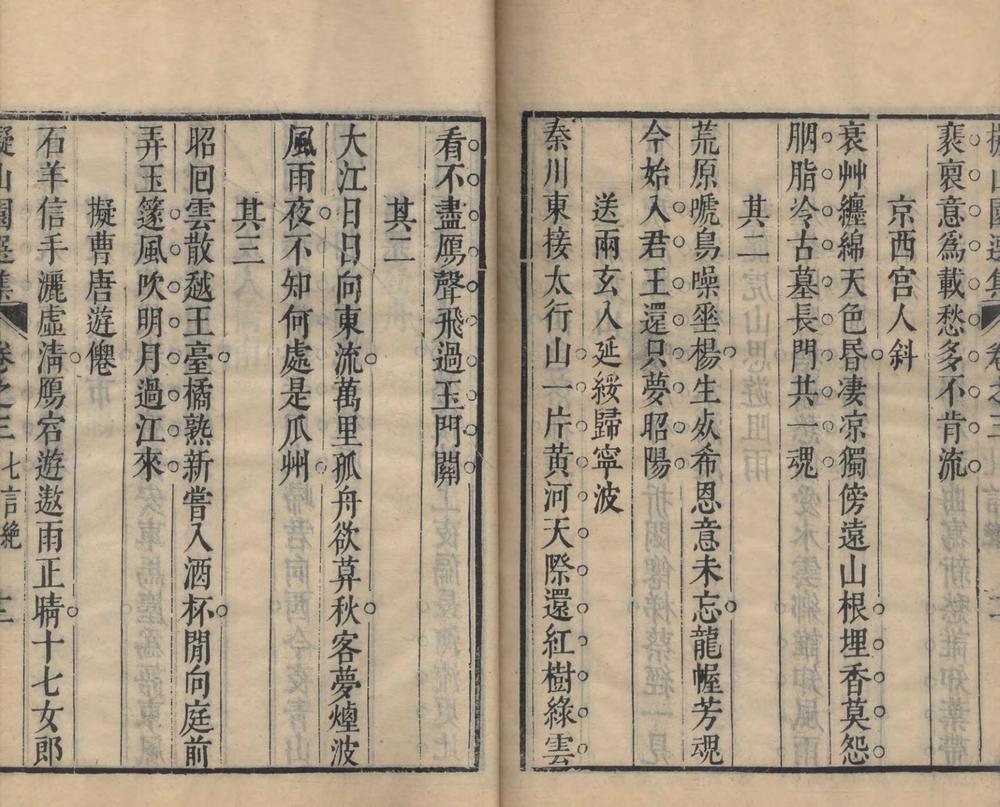 裹裒意爲載愁多不肯流
京西宫人斜
衰艸纏綿天色昏凄凉獨傍遠山根埋香莫怨
胭脂冷古墓長門共一魂
其二
荒原唬鳥噪垂楊生㱔希恩意未忘龍幄芳魂
今始入君王還只夢昭陽
送兩玄入延綏歸寧波
秦川東接太行山一片黄河天際還紅樹綠雲
看不盡鴈聲飛過玉門關
其二
大江日日向東流萬里孤舟欲莫秋客夢煙波
風雨夜不知何處是瓜州
其三
昭回雲散越王臺橘熟新嘗入酒杯閒向庭前
弄玉篴風吹明月過江來
擬曹唐遊僊
石羊信手灑虛淸鴈宕遊遨雨正晴十七女郎
擬山園選集 卷之三 七言絶 十三